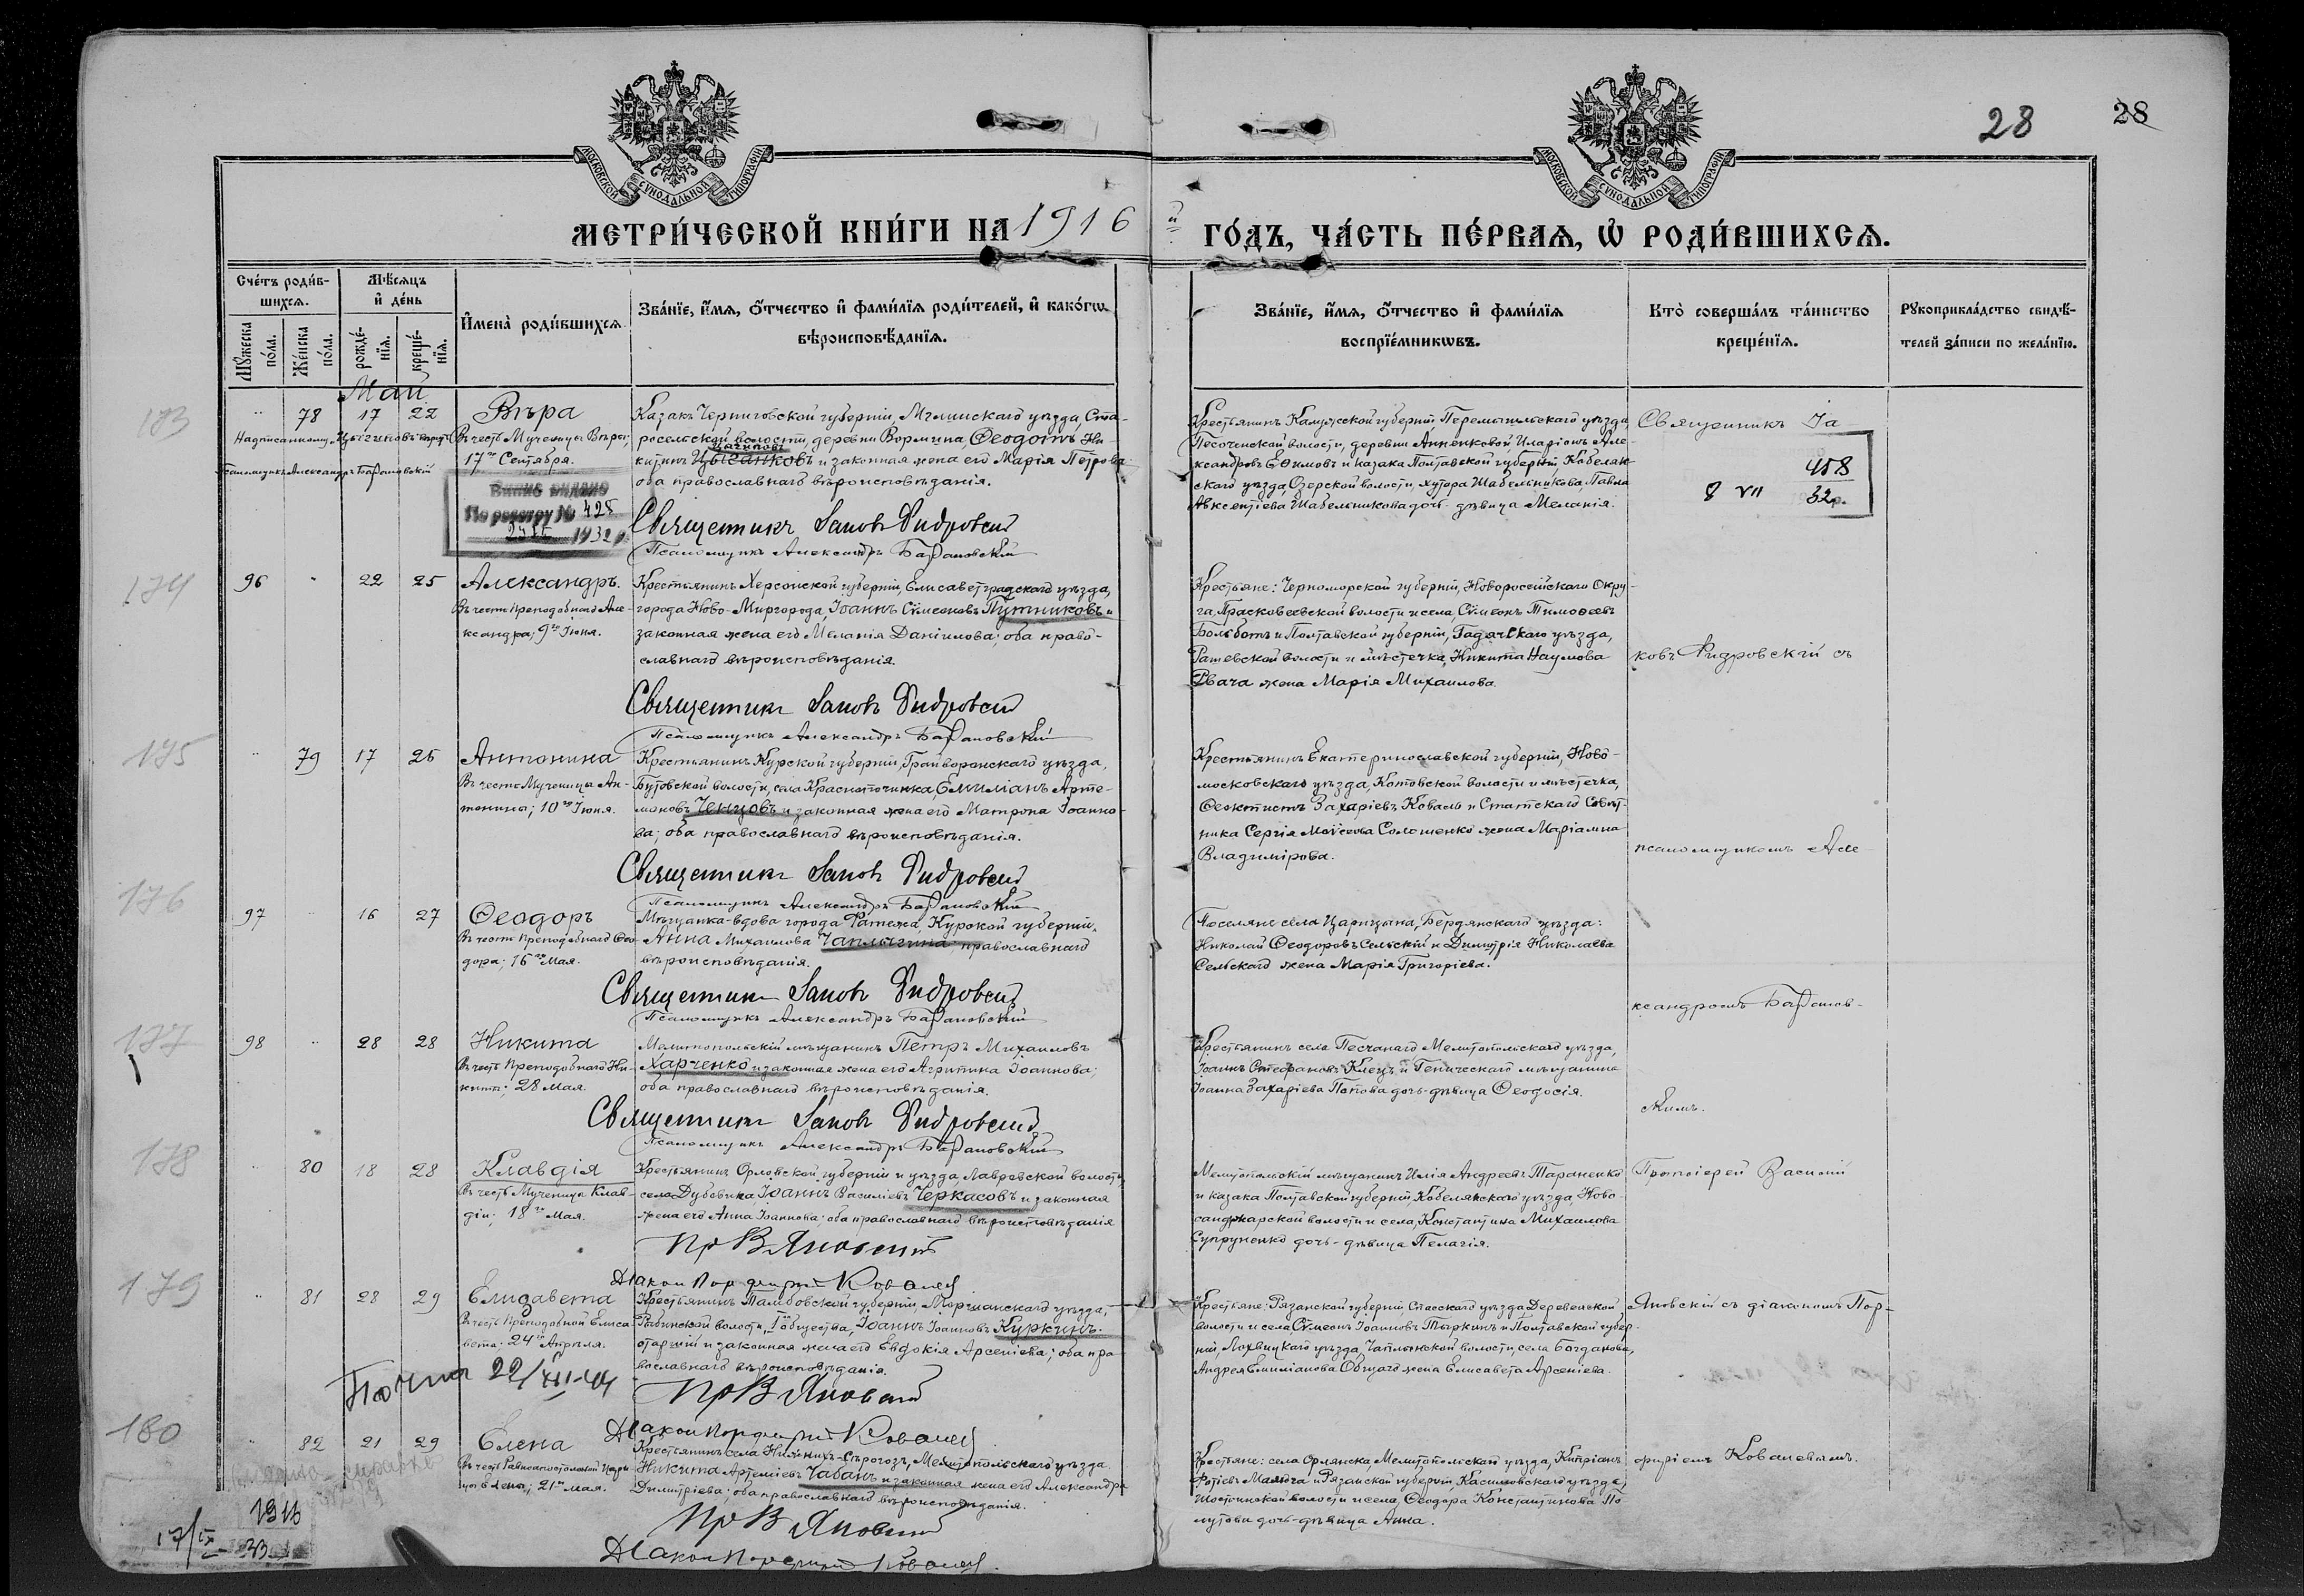 28
28
МОСКОВСКОЙ СѴНОДАЛЬНОЙ ТИПОГРАФІИ
МОСКОВСКОЙ СѴНОДАЛЬНОЙ ТИПОГРАФІИ
МЕТРИ́ЧЕСКОЙ КНИ́ГИ НА 1916 й ГО́ДЪ, ЧА́СТЬ ПЕ́РВАѦ, Ѡ РОДИ́ВШИХСѦ.
Сче́тъ роди́вшихсѧ.
Мꙋ́жеска по́ла.
Же́нска по́ла.
Мѣ́сѧцъ и҆ де́нь
рожде́нїѧ.
креще́нїѧ.
И҆мена̀ роди́вшихсѧ
Зва́нїе, и҆́мѧ, ѻ҆́тчество и҆ фами́лїѧ роди́телей, и҆ како́гѡ
вѣроисповѣ́данїѧ.
Зва́нїе, и҆́мѧ, ѻ҆́тчество и҆ фами́лїѧ
воспрїе́мникѡвъ.
Кто̀ соверша́лъ та́инство
креще́нїѧ.
Рꙋкоприкла́дство свидѣ́-
телей за́писи по жела́нїю.
Май
173
78 17 22 Вѣра
Въ честь Мученицы Вѣры,
17го Сентября.
Псаломщикъ Александръ Барановскій
По реестру № 428
1932
Казакъ Черниговской губерніи, Мглинскаго уѣзда, Ста-
росельской волости, деревни Вормина Ѳеодотъ Ни-
китинъ Цыганковъ и законная жена его Марія Петрова
оба православнаго вѣроисповѣданія.
Священникъ Іаковъ Гидровскій
Псаломщикъ Александръ Барановскій
Крестьянинъ Калужской губерніи, Перемышльскаго уѣзда,
Песоченской волости, деревни Анненковой, Иларіонъ Але-
ксандровъ Еѳимовъ и казака Полтавской губерніи, Кобеляк-
скаго уѣзда, Озерской волости, хутора Шабельникова, Павла
Авксентіева Шабельникова дочь-дѣвица Меланія.
Священникъ Іа-
458
8 VII 32р.
174
96 22 25 Александръ.
Въ честь Преподобнаго Але-
ксандра; 9го Іюня.
Крестьянинъ Херсонской губерніи, Елисаветградскаго уѣзда,
города Ново-Миргорода, Іоаннъ Сѵмеоновъ Путниковъ и
законная жена его Меланія Даніилова; оба право-
славнаго вѣроисповѣданія.
Священникъ Іаковъ Гидровскій
Псаломщикъ Александръ Барановскій
Крестьяне: Черноморской губерніи, Новоросейскаго Окру-
га, Прасковеевской волости и села, Сѵмеонъ Тимоѳеевъ
Больботъ и Полтавской губерніи, Гадячскаго уѣзда,
Рашевской волости и мѣстечка, Никита Наумова
Рвача жена Марія Михаилова.
ковъ Гидровскій съ
175
79 17 25 Антонина
Въ честь Мученицы Ан-
тонины; 10го Іюня.
Крестьянинъ Курской губерніи, Грайворонскаго уѣзда,
Бутовской волости, села Краснопочинка, Емиліанъ Арте-
моновъ Ченцовъ и законная жена его Матрона Іоанно-
ва; оба православнаго вѣроисповѣданія.
Священникъ Іаковъ Гидровскій
Псаломщикъ Александръ Барановскій
Крестьянинъ Екатеринославской губерніи, Ново-
московскаго уѣзда, Котовской волости и мѣстечка,
Ѳеоктистъ Захаріевъ Коваль и Статскаго Совѣт-
ника Сергія Моѵсеева Солошенко жена Маріамна
Владимірова.
псаломщикомъ Але-
176
97 16 27 Ѳеодоръ
Въ честь Преподобнаго Ѳео-
дора; 16го Мая.
Мѣщанка-вдова города Фатежа, Курской губерніи,
Анна Михаилова Чаплыгина; православнаго
вѣроисповѣданія.
Священникъ Іаковъ Гидровскій
Псаломщикъ Александръ Барановскій
Поселяне села Царицына, Бердянскаго уѣзда:
Николай Ѳеодоровъ Сельскій и Димитрія Николаева
Сельскаго жена Марія Григоріева.
ксандромъ Баранов-
177
98 28 28 Никита
Въ честь Преподобнаго Ни-
киты; 28 Мая.
Мелитопольскій мѣщанинъ Петръ Михаиловъ
Харченко и законная жена его Агрипина Іоаннова;
оба православнаго вѣроисповѣданія.
Священникъ Іаковъ Гидровскій
Псаломщикъ Александръ Барановскій
Крестьянинъ села Песчанаго Мелитопольскаго уѣзда,
Іоаннъ Стефановъ Клецъ и Геническаго мѣщанина
Іоанна Захаріева Попова дочь-дѣвица Ѳеодосія.
скимъ.
178
80 18 28 Клавдія
Въ честь Мученицы Клав-
діи; 18го Мая.
Крестьянинъ Орловской губерніи и уѣзда, Лавровской волости,
села Дубовика Іоаннъ Василіевъ Черкасовъ и законная
жена его Анна Іоаннова; оба православнаго вѣроисповѣданія
Пр В Яновскій
Діаконъ Порфирій Ковалев
Мелитопольскій мѣщанинъ Илія Андреевъ Тараненко
и казака Полтавской губерніи, Кобелякскаго уѣзда, Ново-
санджарской волости и села, Константина Михаилова
Супруненко дочь-дѣвица Пелагія.
Протоіерей Василій
179
81 28 29 Елизавета
Въ честь Преподобной Елиса-
веты; 24го Апрѣля.
Крестьянинъ Тамбовской губерніи, Моршанскаго уѣзда,
волости, 1го общества, Іоаннъ Іоанновъ Куркинъ
старшій и законная жена его Евдокія Арсеніева; оба пра-
вославнаго вѣроисповѣданія.
Пр В Яновскій
Діаконъ Порфирій Ковалев
Крестьяне: Рязанской губерніи, Спасскаго уѣзда, Деревенской
волости и села Сѵмеонъ Іоанновъ Тыркинъ и Полтавской губер-
ніи, Лохвицкаго уѣзда, Чаплинской волости, села Богданова,
Андрея Емиліанова Общаго жена Елисавета Арсеніева.
Яновскій съ діакономъ Пор-
22/XII-44
180
82 21 29 Елена
Въ честь Равноапостольной Цари-
цы Елены; 21го мая.
Крестьянинъ села Нижнихъ-Сѣрогозъ, Мелитопольскаго уѣзда
Никита Артеміевъ Чабанъ и законная жена его Александра
Димитріева; оба православнаго вѣроисповѣданія.
Пр В Яновскій
Діаконъ Порфирій Ковалев
Крестьяне: села Орлянска Мелитопольскаго уѣзда, Кипріанъ
Фотіевъ Малюга и Рязанской губерніи, Касимовскаго уѣзда,
волости и села, Ѳеодора Константинова По-
лутова дочь-дѣвица Анна.
фиріемъ Ковалевымъ.
17/IX-33